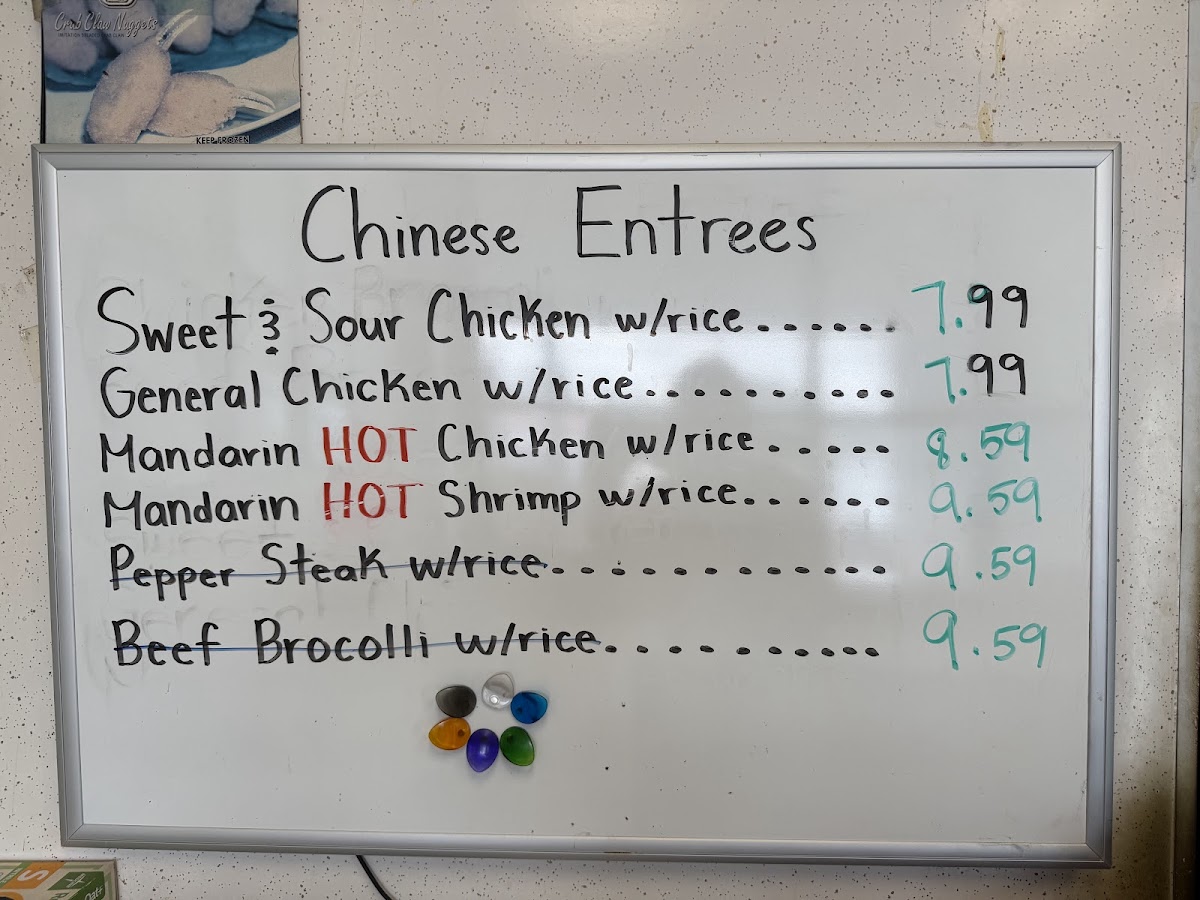 Crab Claw Nuggets
KEEP FROZEN
Chinese Entrees
Sweet & Sour Chicken w/rice...... 7.99
General Chicken w/rice........... 7.99
Mandarin HOT Chicken w/rice...... 8.59
Mandarin HOT Shrimp w/rice...... 9.59
Pepper Steak w/rice............. 9.59
Beef Brocolli w/rice........... 9.59